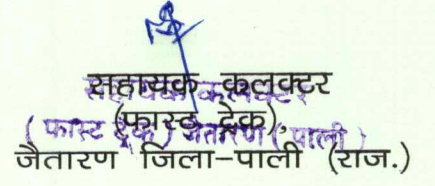 सहायक कलक्टर
(फास्ट ट्रेक),
जैतारण जिला-पाली (राज.)
सहायक कलक्टर
(फास्ट ट्रेक) जैतारण (पाली)